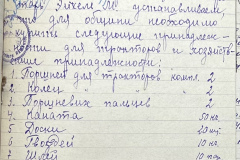 устанавливаем,
что для общины необходимо
купить следующие принадлеж-
ности для тракторов и хозяйст-
венные принадлежности:
1 Поршней для тракторов компл. 2
2 Колец " " " 2
3 Поршневых пальцев 2
4 Каната 50
5 Доски 20
6 Гвоздей 10
7 10